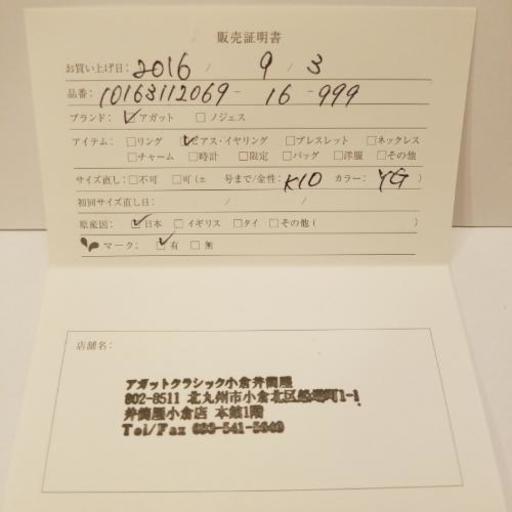 販売証明書
お買い上げ日: 2016 / 9 / 3
品番: 10163112069- 16 -999
ブランド: ☑アガット □ノジェス
アイテム: □リング ☑ピアス・イヤリング □ブレスレット □ネックレス
□チャーム □時計 □限定 □バッグ □洋服 □その他
サイズ直し: □不可 □可(± 号まで/金性: K10 カラー: YG )
初回サイズ直し日: / /
原産国: ☑日本 □イギリス □タイ □その他( )
マーク: ☑有 □無
店舗名:
アガットクラシック小倉井筒屋
802-8511 北九州市小倉北区船場町1-1
井筒屋小倉店 本館1階
Tel/Fax